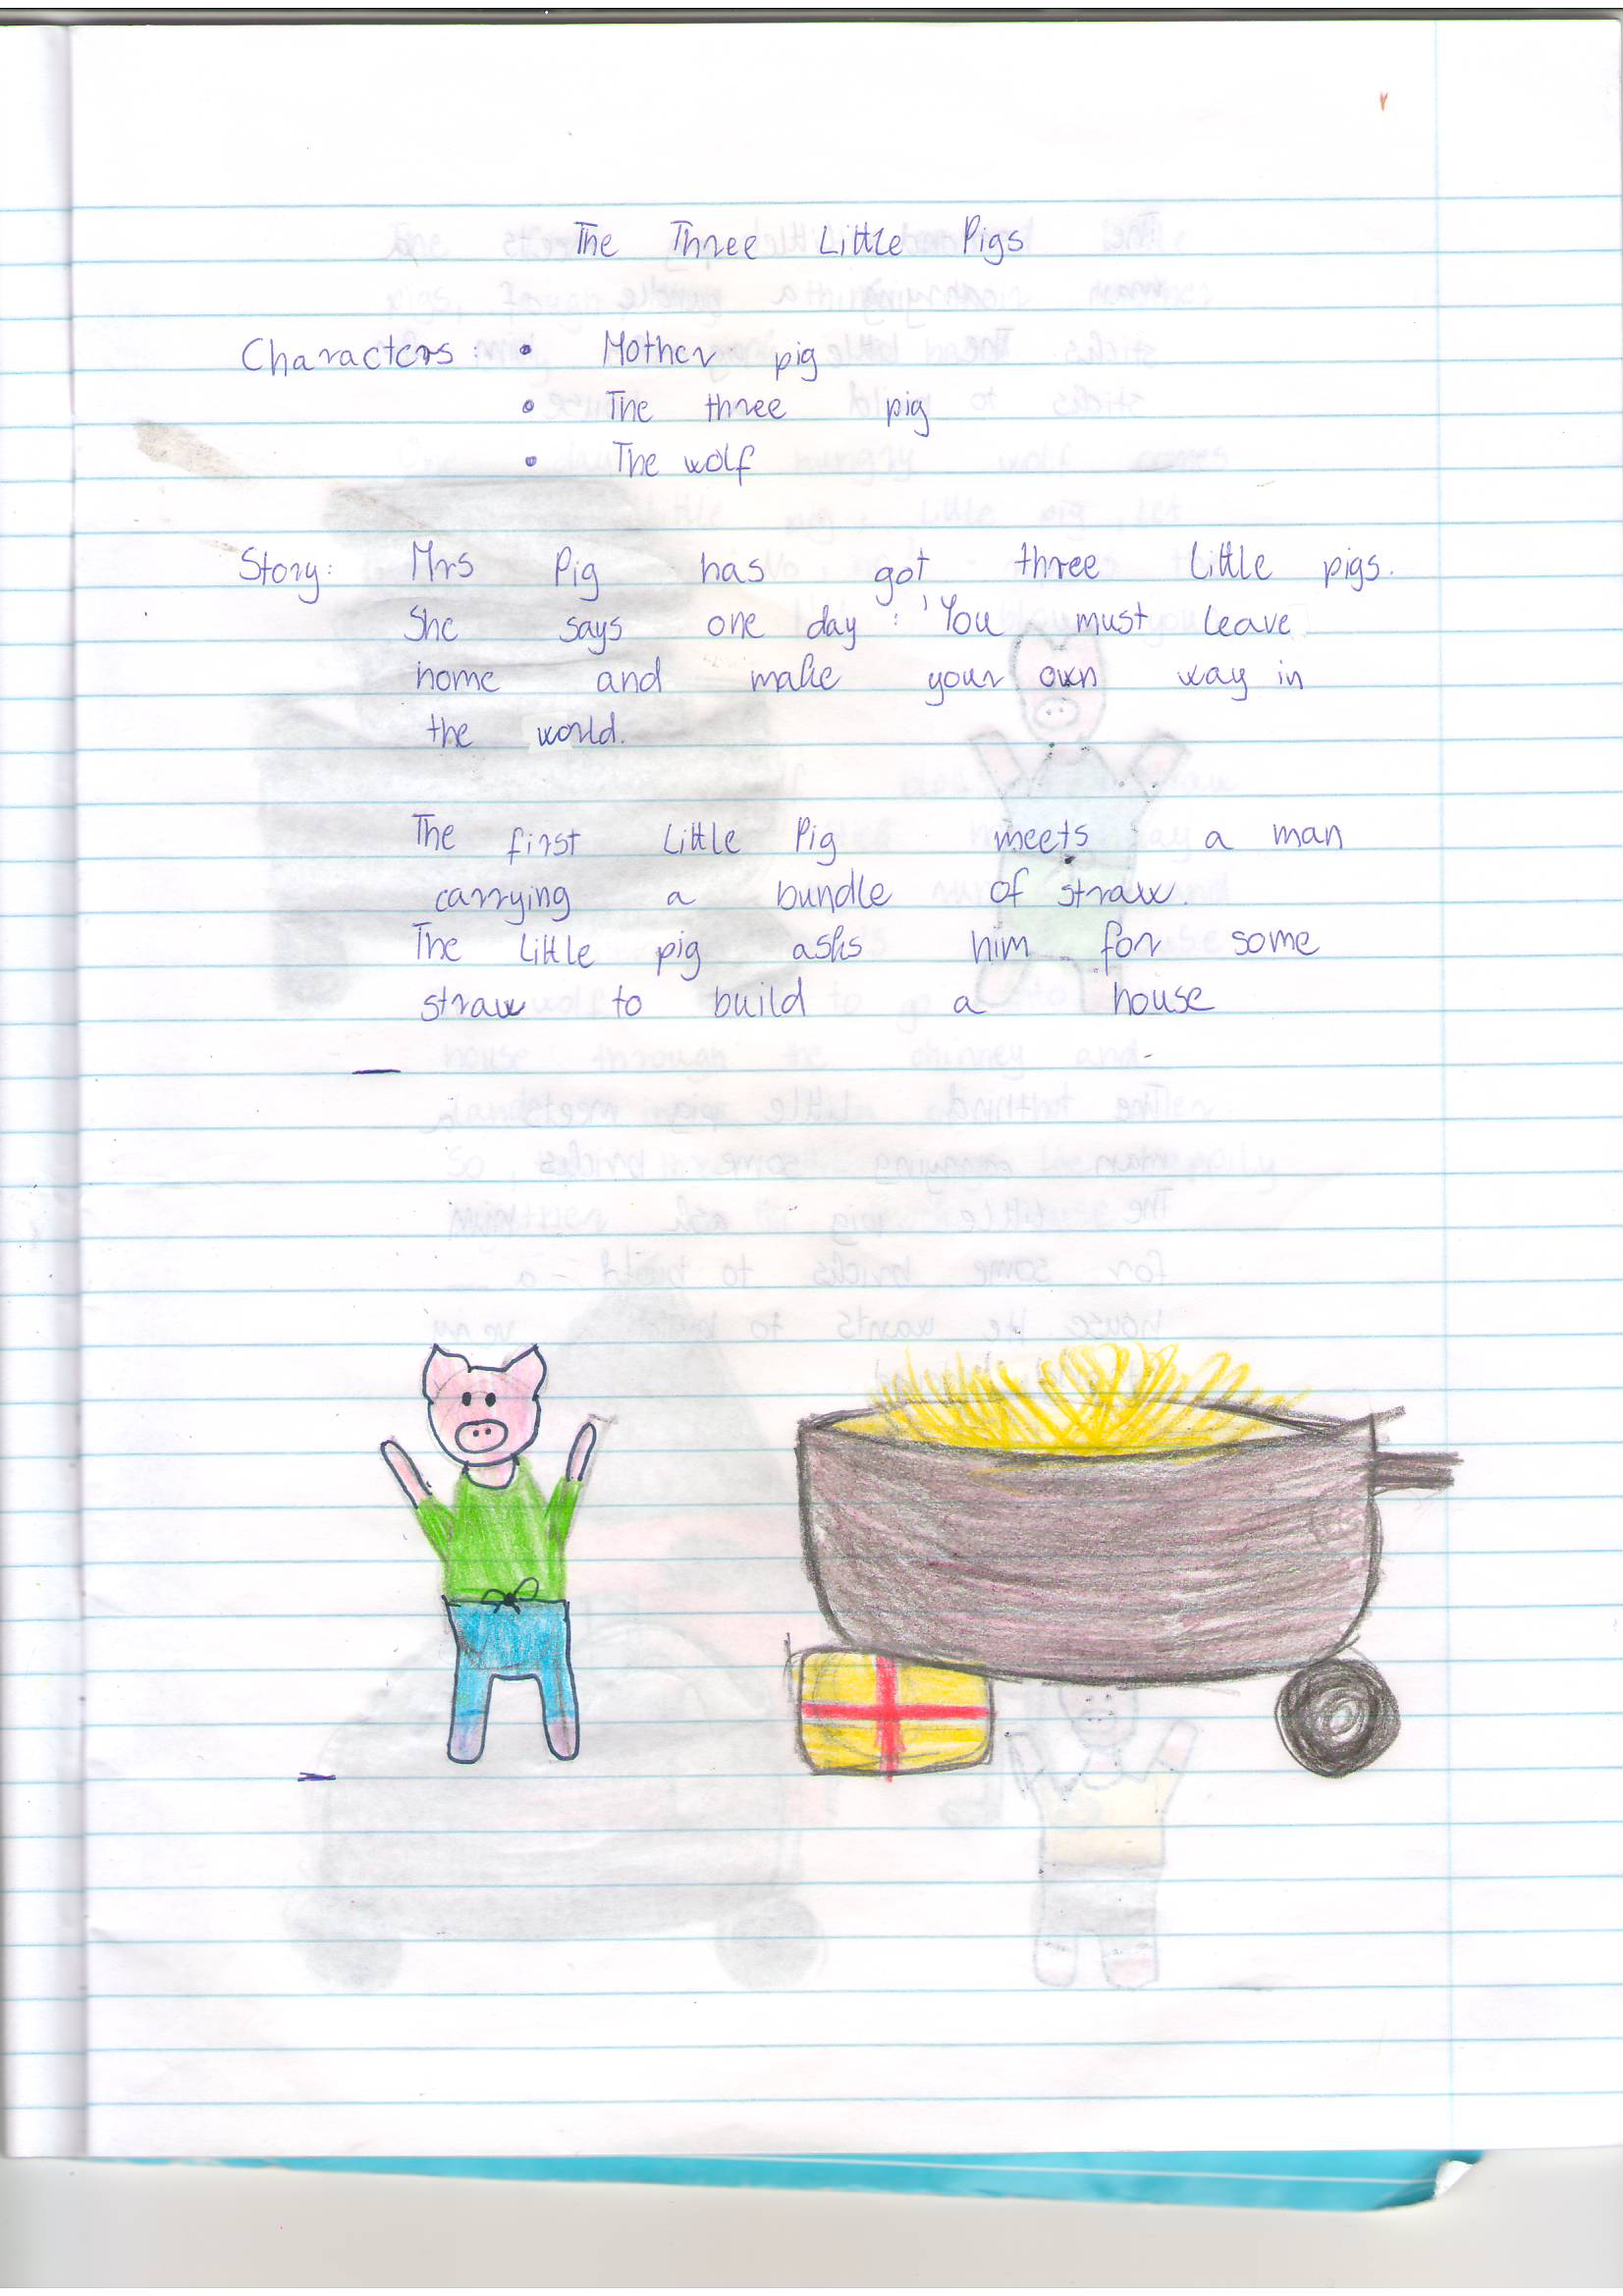 The Three Little Pigs
Characters: • Mother pig
• The three pig
• The wolf
Story: Mrs Pig has got three little pigs.
She says one day: 'You must leave
home and make your own way in
the world.
The first Little Pig meets a man
carrying a bundle of straw.
The little pig asks him for some
straw to build a house